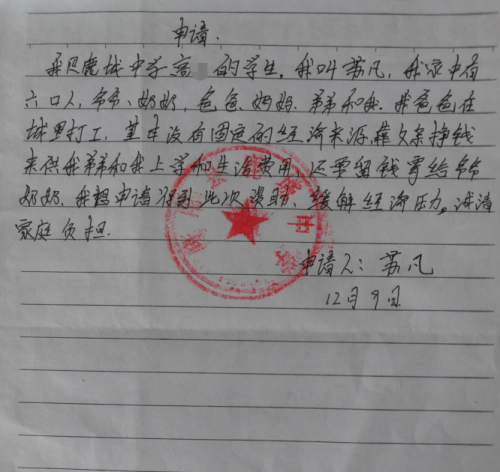 申请.
我是鹿城中学高 的学生。我叫苏凡，我家中有
六口人，爷爷、奶奶、爸爸、妈妈、弟弟和我。我爸爸在
城里打工，基本没有固定的经济来源，靠父亲挣钱
来供我弟弟和我上学和生活费用，还要留钱寄给爷爷
奶奶。我想申请得到此次资助、缓解经济压力。减清
家庭负担.
申请人：苏凡
12月9日